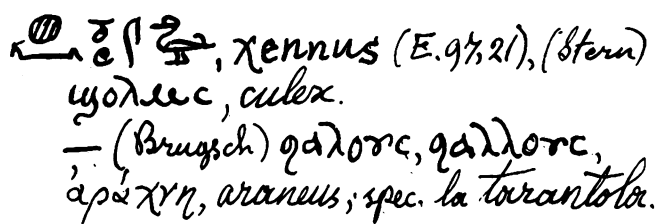 χennus (E. 97,21), (Stern)
ϣⲟⲗⲙⲉⲥ, culex.
— (Brugsch) ϩⲁⲗⲟⲩⲥ, ϩⲁⲗⲗⲟⲩⲥ,
ἀράχνη, araneus; spec. la tarantola.